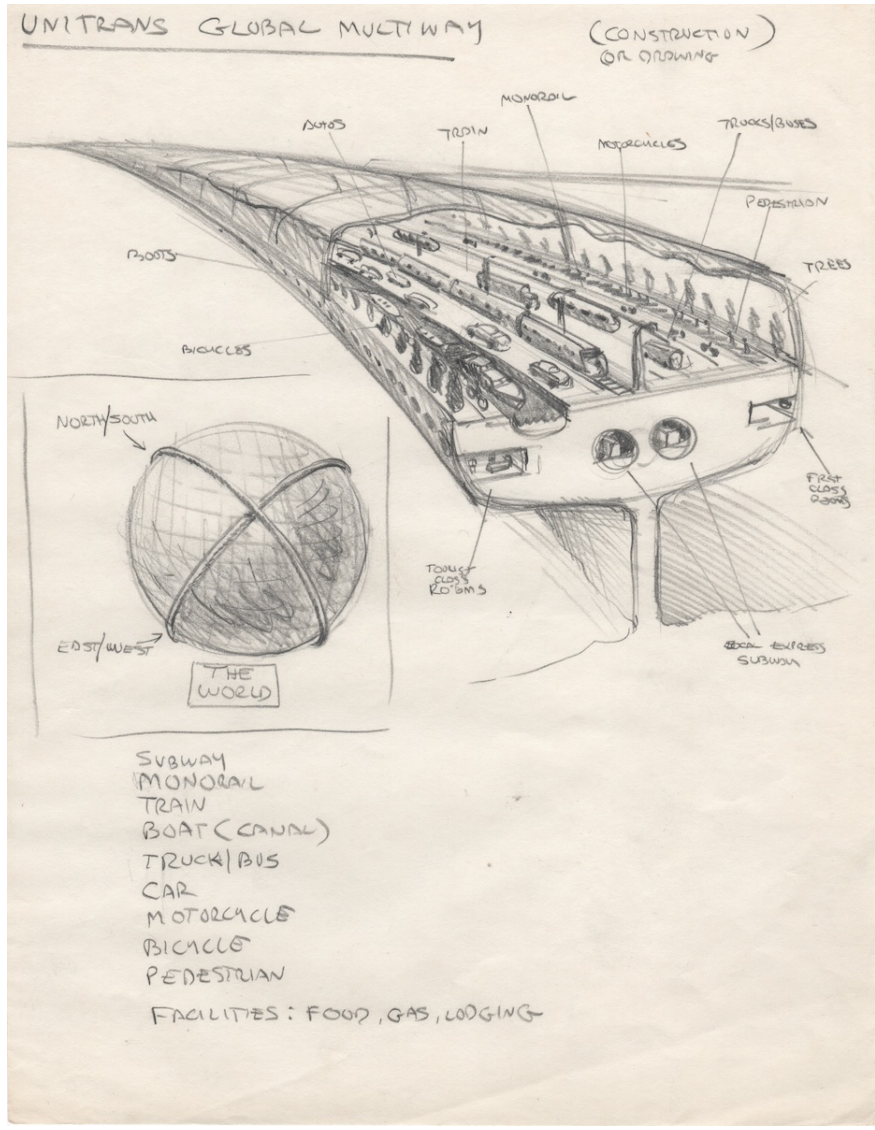 UNITRANS GLOBAL MULTIWAY
(CONSTRUCTION)
OR DRAWING
MONORAIL
AUTOS
TRAIN
MOTORCYCLES
TRUCKS/BUSES
PEDESTRIAN
TREES
BOATS
BICYCLES
NORTH/SOUTH
FIRST
CLASS
ROOMS
TOURIST
CLASS
ROOMS
EAST/WEST
THE
WORLD
LOCAL EXPRESS
SUBWAY
SUBWAY
MONORAIL
TRAIN
BOAT (CANAL)
TRUCK/BUS
CAR
MOTORCYCLE
BICYCLE
PEDESTRIAN
FACILITIES: FOOD, GAS, LODGING